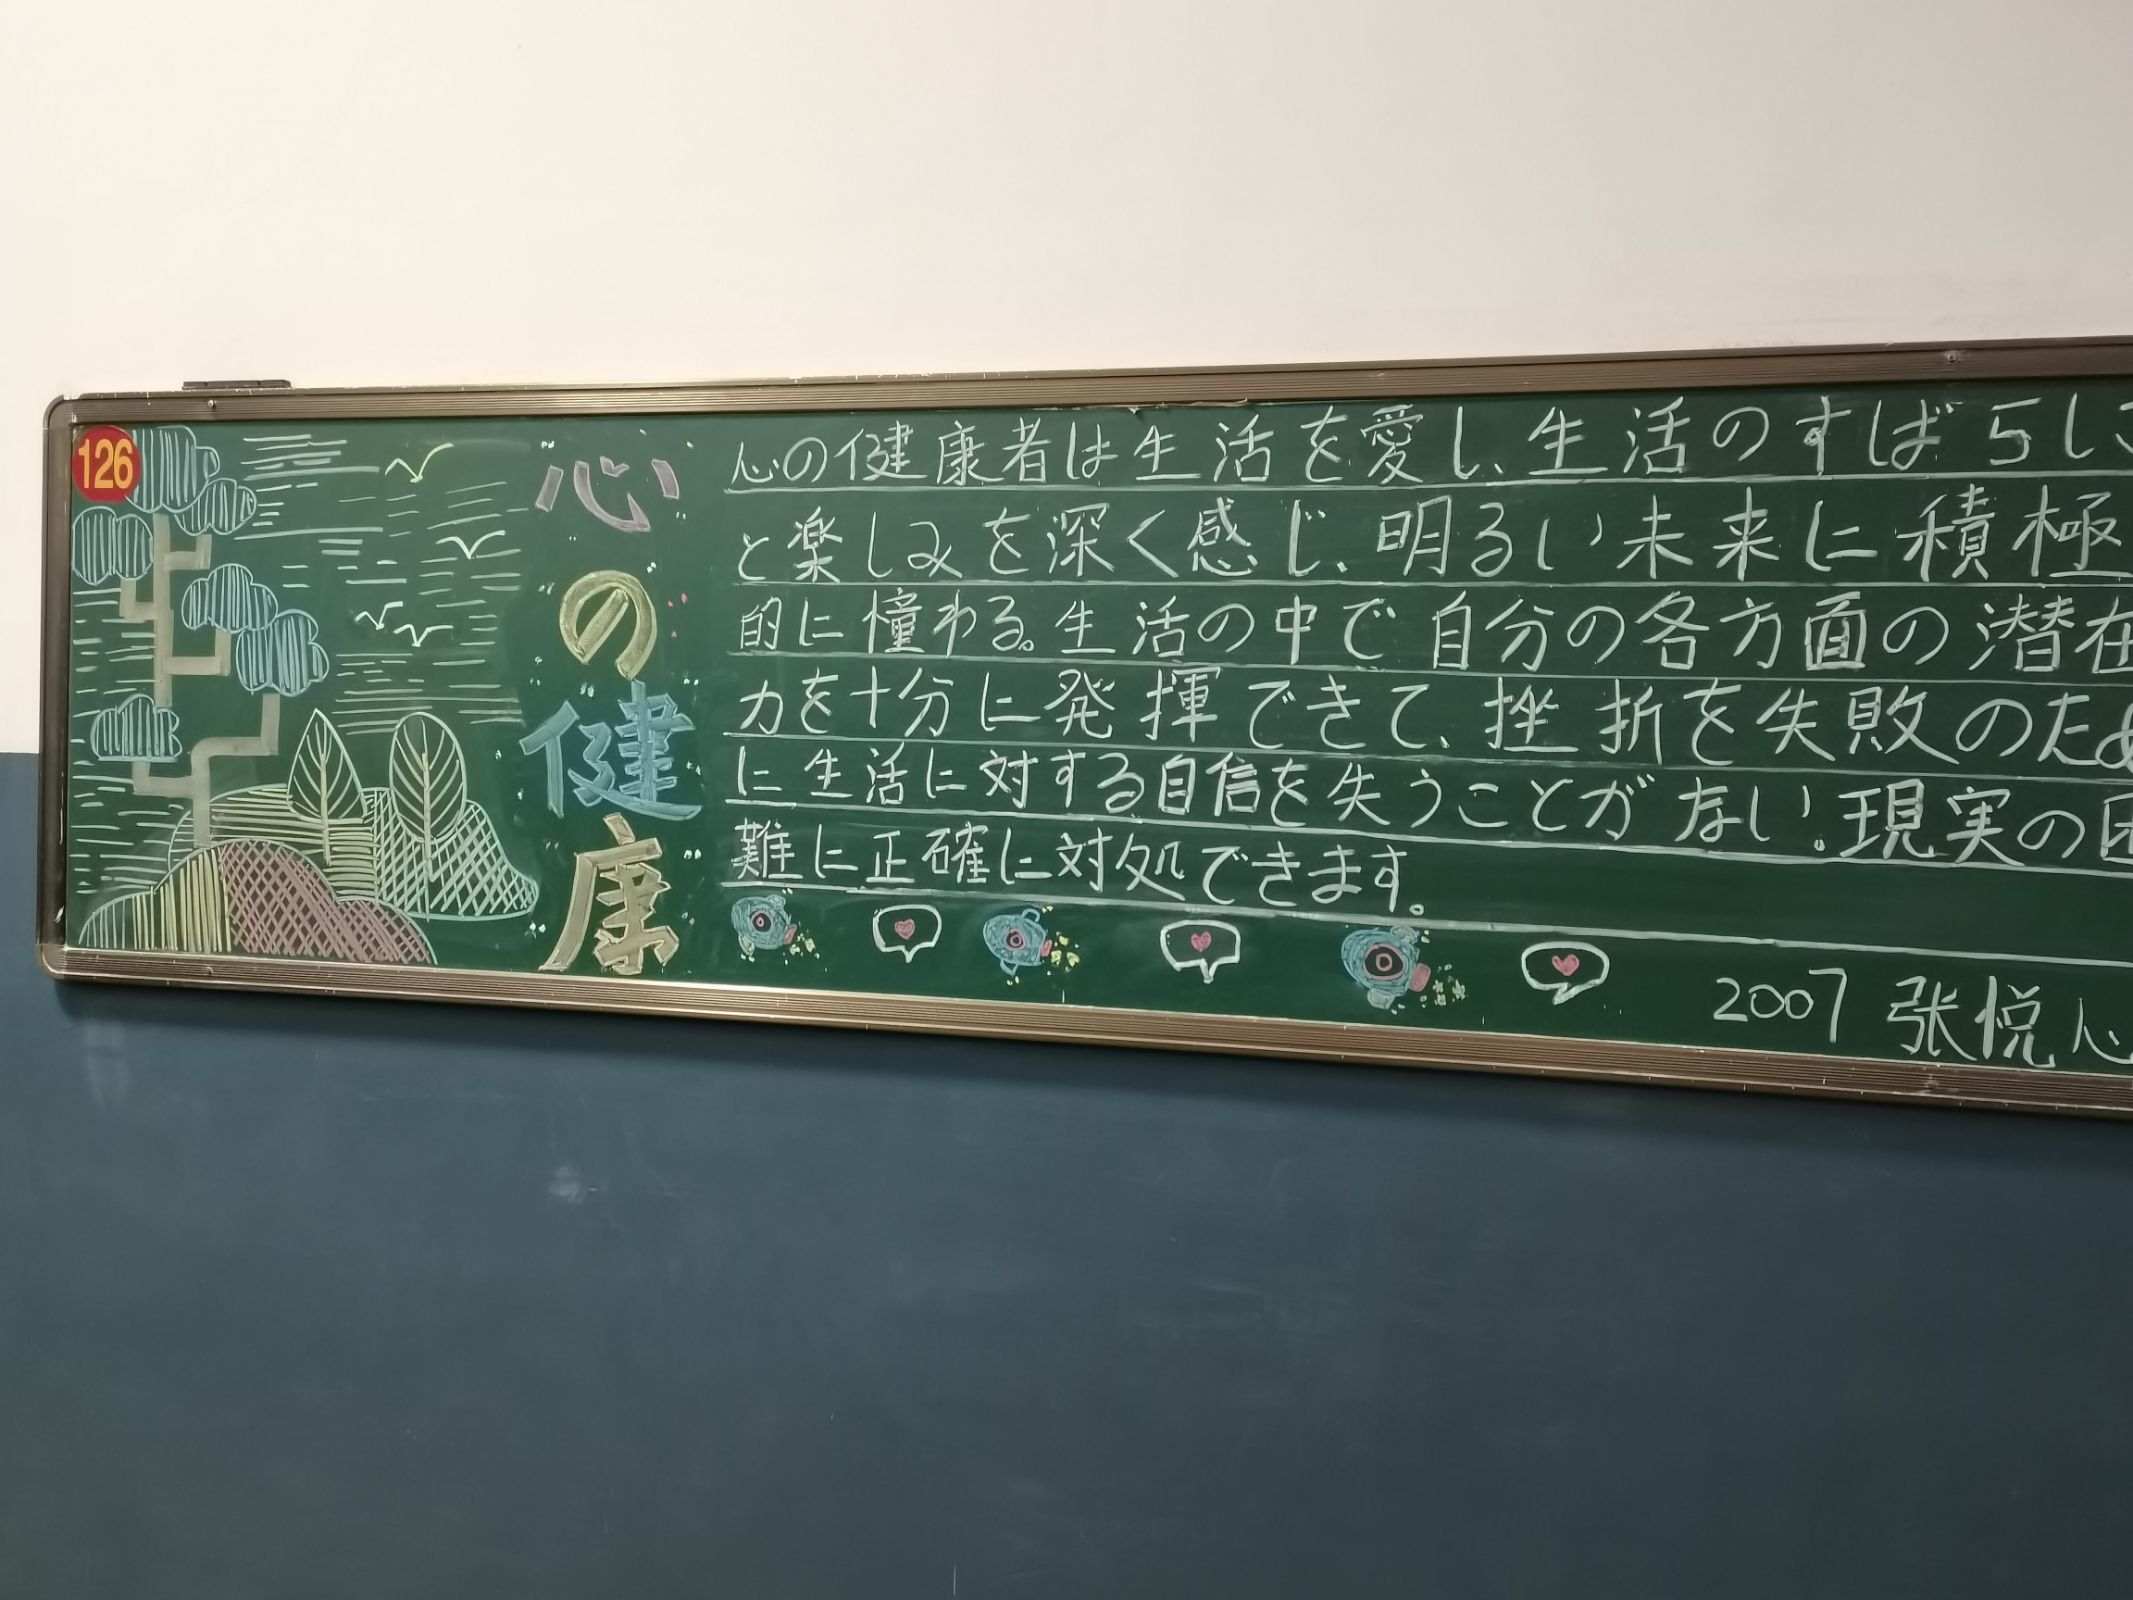 126
心の健康
心の健康者は生活を愛し、生活のすばらしさ
と楽しみを深く感じ、明るい未来に積極
的に憧わる。生活の中で自分の各方面の潜在
力を十分に発揮できて、挫折を失敗のため
に生活に対する自信を失うことがない。現実の困
難に正確に対処できます。
2007 张悦心